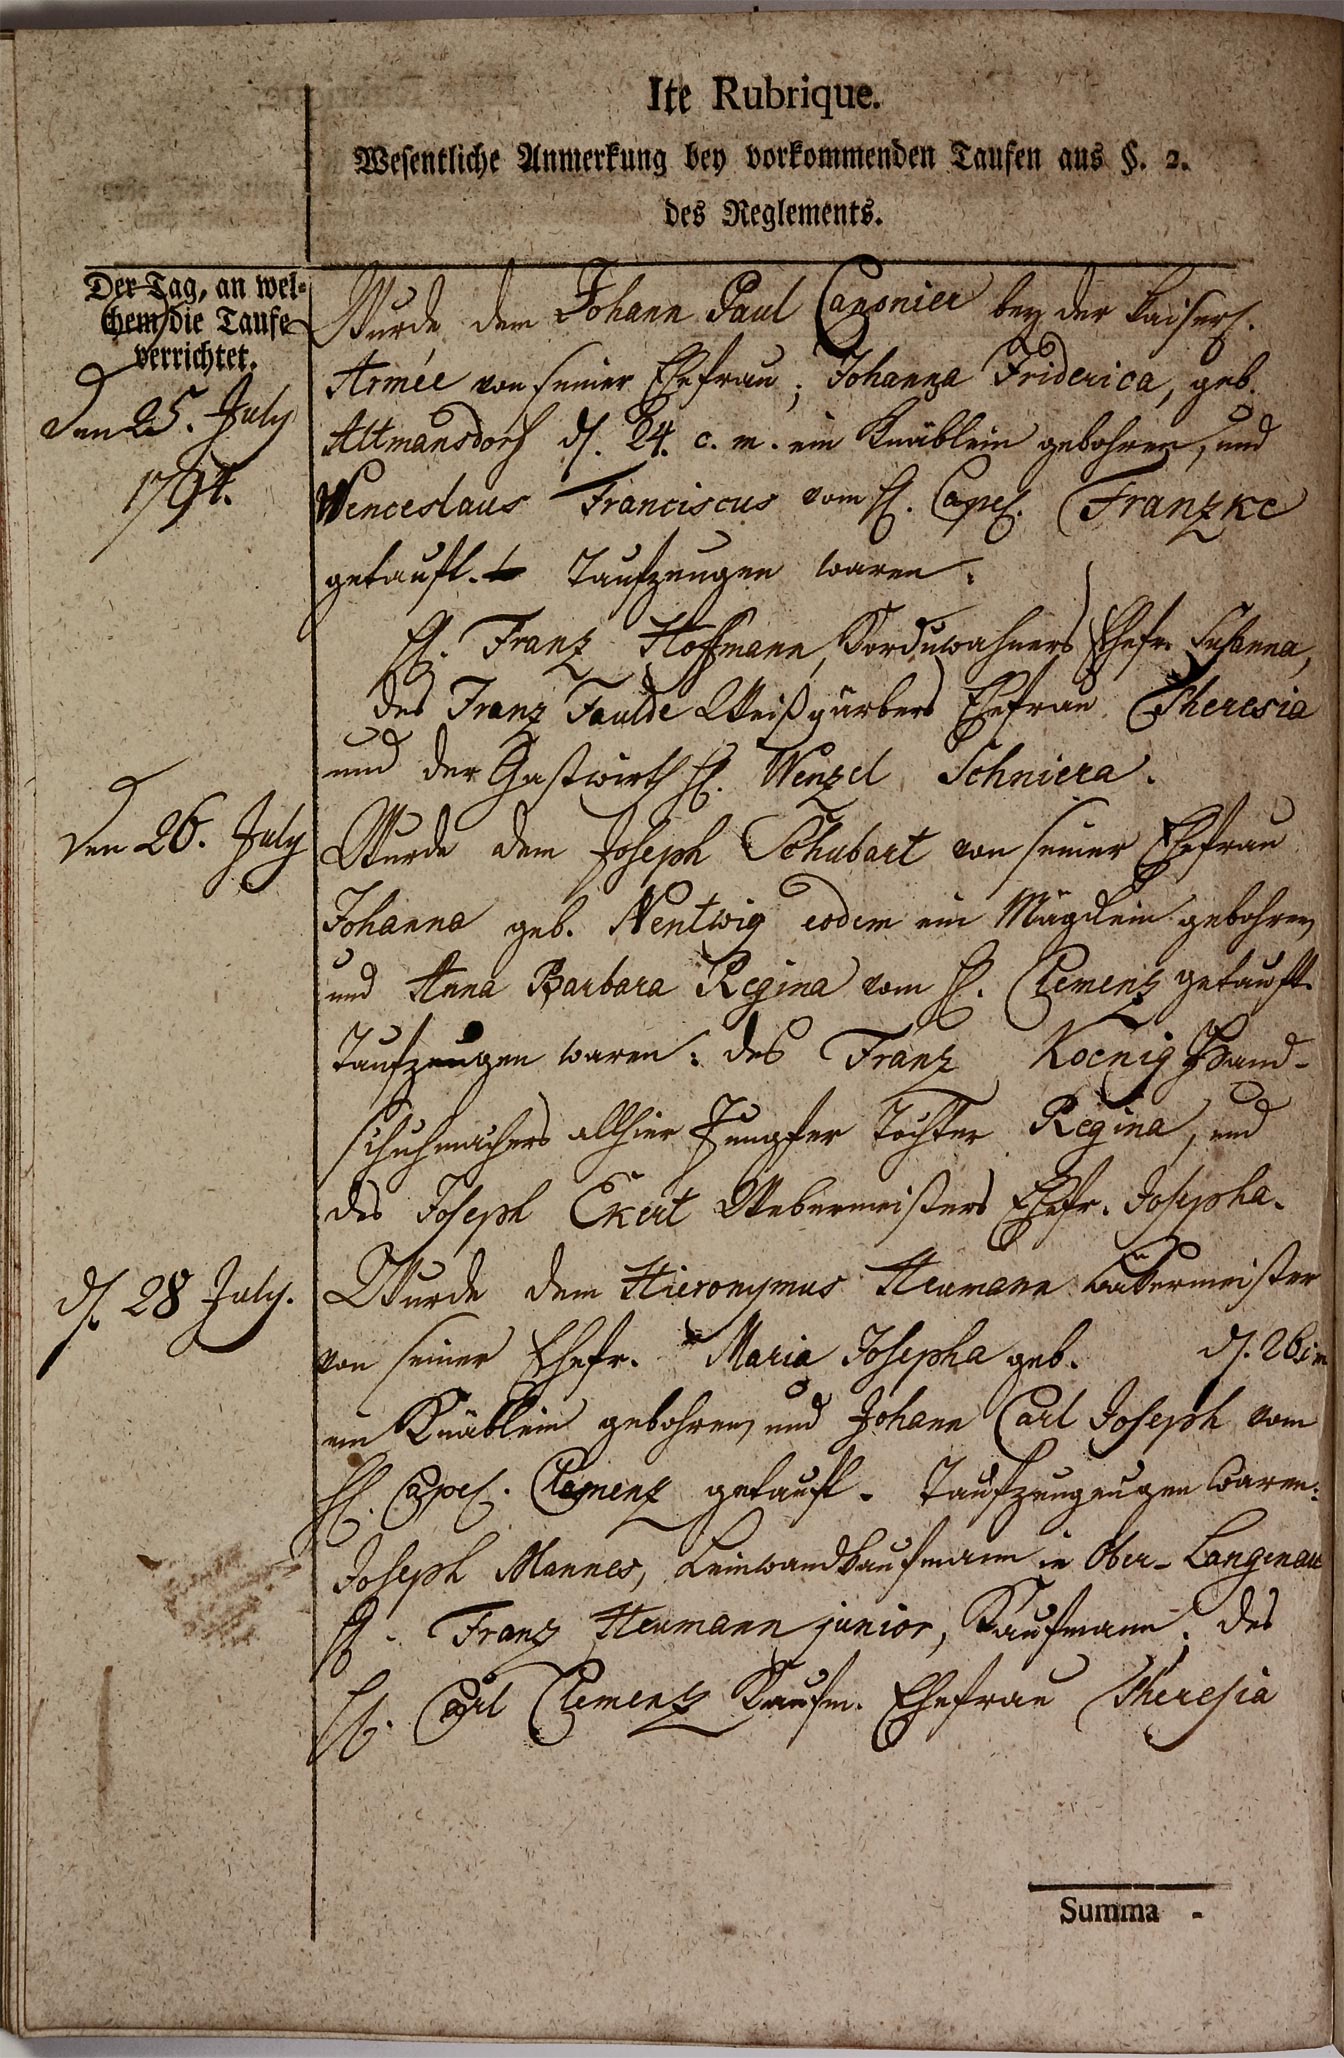 Ite Rubrique.
Wesentliche Anmerkung bey vorkommenden Taufen aus §. 2.
des Reglements.
Der Tag, an wel-
chem die Taufe
verrichtet.
Den 25. July
1794.
Wurde dem Johann Paul Canonier bey der Kaiserl.
Armée von seiner Ehefrau, Johanna Friderica, geb.
Altmansdorf d. 24. c. m. ein Knäblein gebohren, und
Wenceslaus Franciscus vom H. Capel. Franzke
getauft. Taufzeugen waren:
H. Franz Hoffmann, Korduwahners Ehefr. Susanna,
des Franz Faulde Weißgärbers Ehefrau Theresia
und der Gastwirth H. Wenzel Schniera.
Den 26. July
Wurde dem Joseph Schubart von seiner Ehefrau
Johanna geb. Nentwig eodem ein Mägdlein gebohren
und Anna Barbara Regina vom H. Clemenz getauft.
Taufzeugen waren: des Franz Koenig Hand-
schuhmachers allhier Jungfer Tochter Regina, und
des Joseph Ekert Webermeisters Ehefr. Josepha.
d. 28 July.
Wurde dem Hieronymus Heumann Bäkermeister
von seiner Ehefr. Maria Josepha geb. d. 26
ein Knäblein gebohren und Johann Carl Joseph vom
H. Capel. Clemenz getauft. Taufzeugeugen waren:
Joseph Mannes, Leinwandkaufmann in Ober-Langenau
H. Franz Heumann junior, Kaufmann, des
H. Carl Clemenz Kaufm. Ehefrau Theresia
Summa -